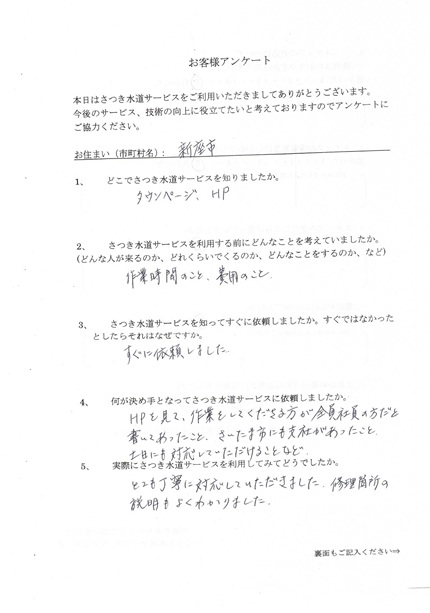 お客様アンケート
本日はさつき水道サービスをご利用いただきましてありがとうございます。
今後のサービス、技術の向上に役立てたいと考えておりますのでアンケートに
ご協力ください。
お住まい（市町村名）： 新座市
1、 どこでさつき水道サービスを知りましたか。
タウンページ、HP
2、 さつき水道サービスを利用する前にどんなことを考えていましたか。
(どんな人が来るのか、どれくらいでくるのか、どんなことをするのか、など)
作業時間のこと、費用のこと
3、 さつき水道サービスを知ってすぐに依頼しましたか。すぐではなかった
としたらそれはなぜですか。
すぐに依頼しました。
4、 何が決め手となってさつき水道サービスに依頼しましたか。
HPを見て、作業をしてくださる方が全員社員の方だと
書いてあったこと、さいたま市にも支社があったこと、
土日にも対応していただけることなど
5、 実際にさつき水道サービスを利用してみてどうでしたか。
とても丁寧に対応していただきました。修理箇所の
説明もよくわかりました。
裏面もご記入ください⇒